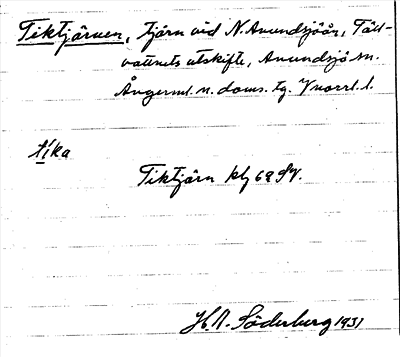 Tiktjärnen, tjärn vid N. Anundsjöån, Täll-
vattnets utskifte, Anundsjö sn.
Ångerml. n. doms. tg. Vnorrl. l.
tíka
Tiktjärn klj 62 SV.
H. A. Söderberg 1931